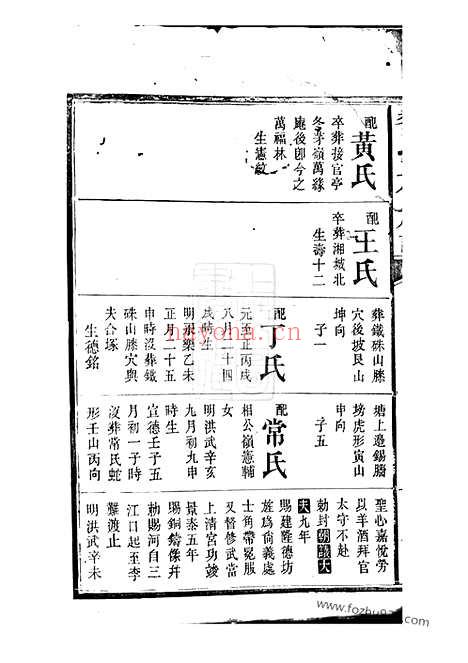 配黃氏
卒葬接官亭
冬茅嶺萬緣
庵後卽今之
萬福林
生憲敏
配王氏
卒葬湘城北
生壽十二
葬鐵硃山滕
穴後坡艮山
坤向
子一
配丁氏
元至正丙戌
八月二十四
戌時生
明永樂乙未
正月二十五
申時沒葬鐵
硃山滕穴與
夫合塚
生德銘
塘上邊錫腦
塝虎形寅山
申向
子五
配常氏
相公嶺憲輔
女
明洪武辛亥
九月初九申
時生
宣德壬子五
月初一子時
沒葬常氏蛇
形壬山丙向
聖心嘉悅勞
以羊酒拜官
太守不赴
勅封朝議大
夫九年
賜建隆德坊
旌爲尙義處
士角帶冕服
又督修武當
上清宮功竣
景泰五年
賜銅鑄像幷
勅賜河自三
江口起至李
灘渡止
明洪武辛未
www.fozhu920.com